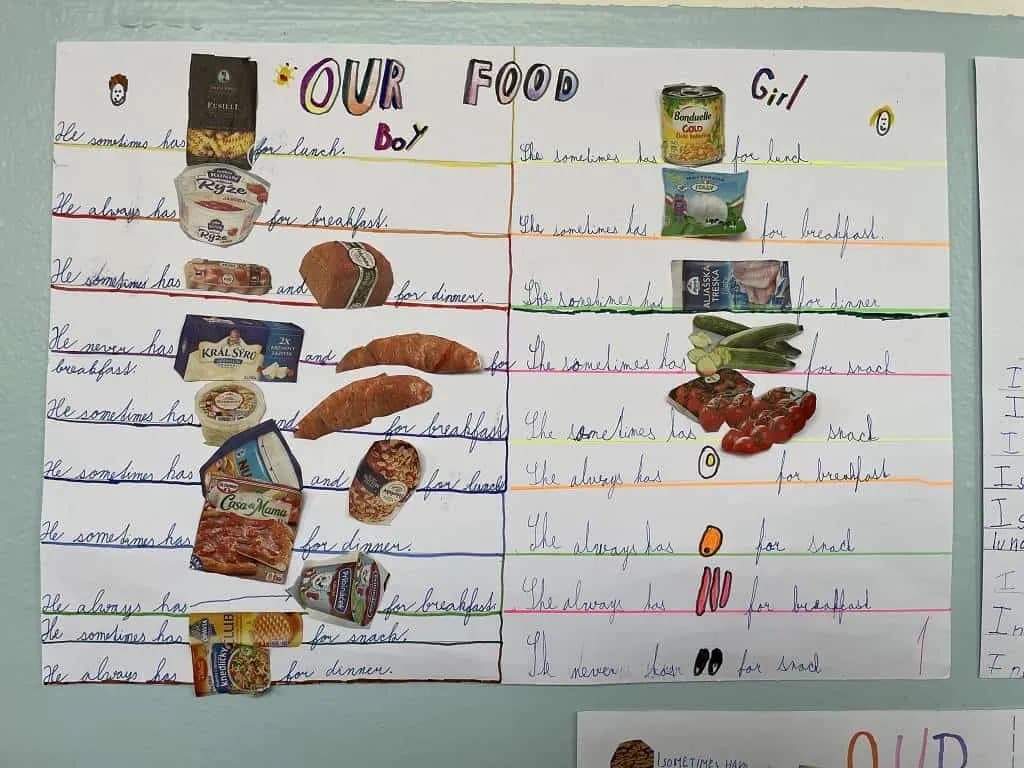 OUR FOOD
BOY
Girl
He sometimes has
FUSILLI
for lunch.
He always has
Ryže
JAHODA
Ryže
for breakfast.
He sometimes has
and
for dinner.
He never has
KRÁL SÝRŮ
2x
and
for
breakfast.
He sometimes has
and
for breakfast
He sometimes has
NU
and
for lunch
He sometimes has
Casa di Mama
for dinner.
He always has
Pribináček
for breakfast.
He sometimes has
CLUB
for snack.
He always has
knedlíčky
for dinner.
She sometimes has
Bonduelle
GOLD
for lunch
She sometimes has
for breakfast.
She sometimes has
ALJAŠSKÁ
TRESKA
for dinner
She sometimes has
for snack
She sometimes has
snack
She always has
for breakfast
She always has
for snack
She always has
for breaffast
She never
for snack
1
I
I
I
I
I
lunc
I
I
I
I SOMETIMES HAVE
OUR